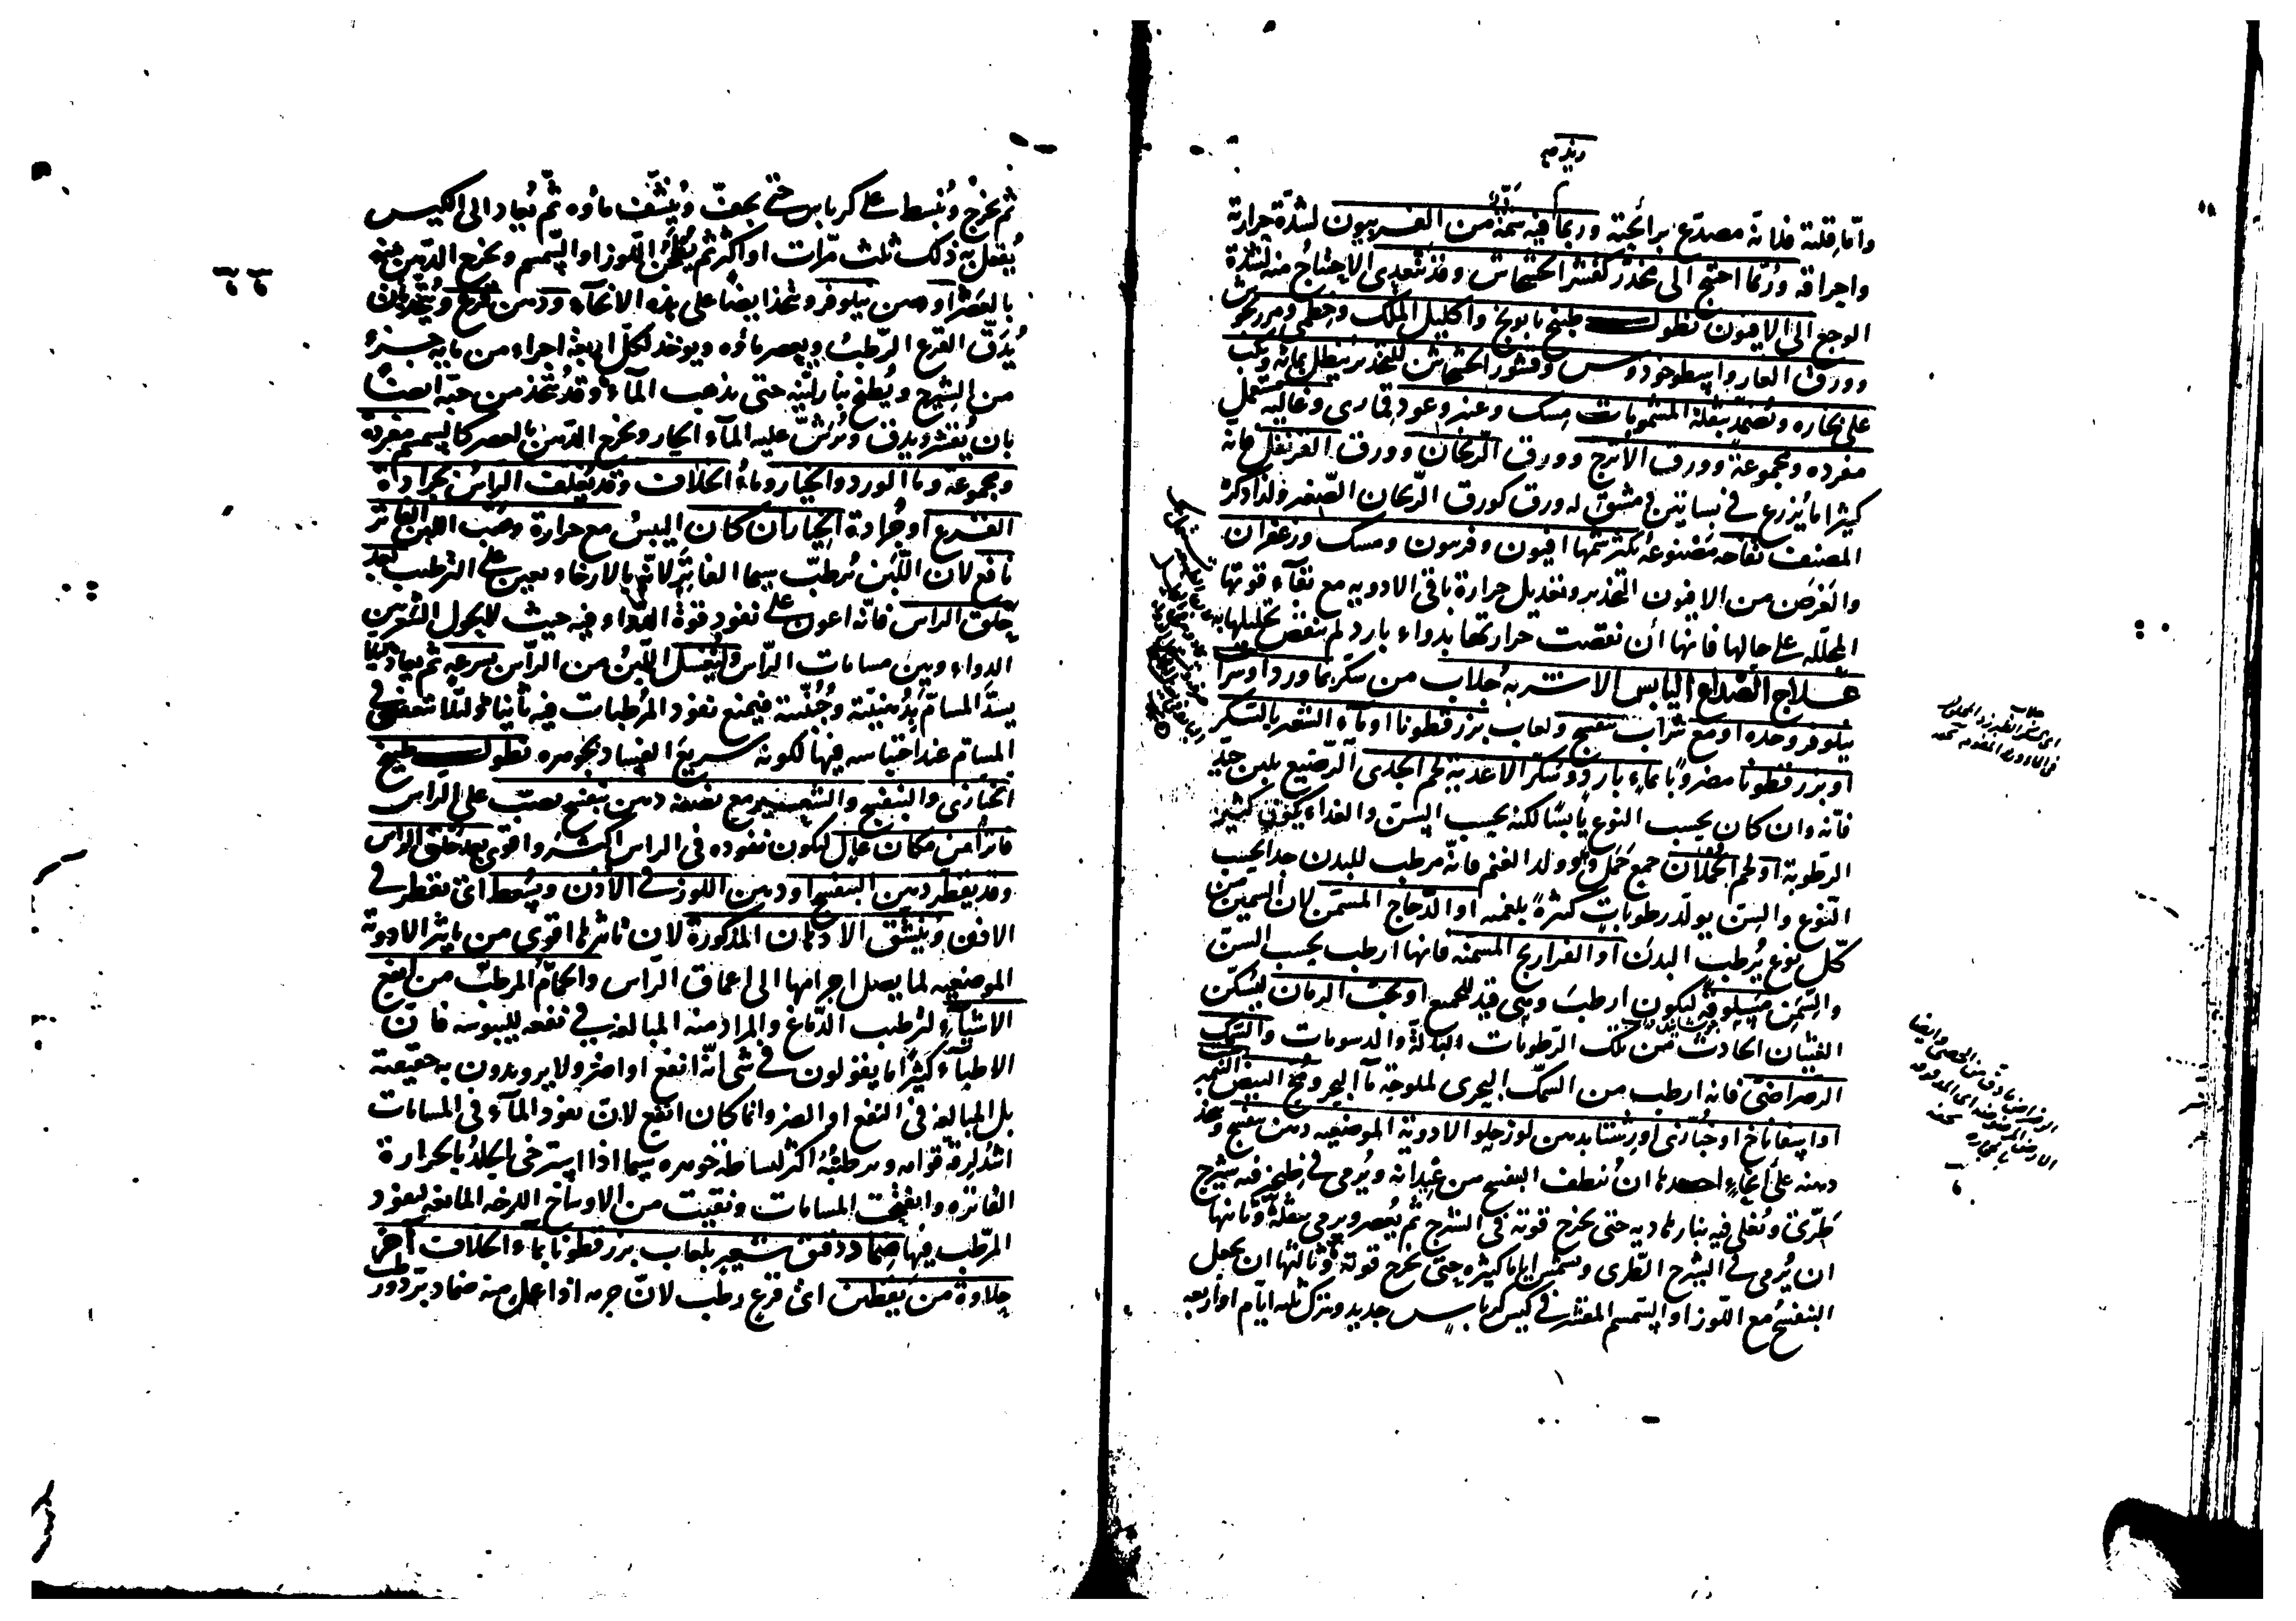 واما قلته فلانه مصدع برائحته وربما فيه سمية من الفربيون لشدة حرارته
واحراقه وربما احتيج الى مخدر كقشر الخشخاش وقد تتعدى الاحتياج منه لشدة
الوجع الى الافيون نطول طبيخ بابونج واكليل الملك وخطمى ومرزنجوش
وورق الغار واسطوخودوس وقشور الخشخاش للتخدير ينطل بمائه ويكب
على بخاره وتضمد بثفله المشمومات مسك وعنبر وعود قمارى وغالية تستعمل
مفردة ومجموعة وورق الاترج وورق الريحان وورق القرنفل فانه
كثيرا ما يزرع فى بساتين دمشق له ورق كورق الريحان الصغير ولذا ذكره
المصنف تفاحة مصنوعة يكثر شمها افيون وفربيون ومسك وزعفران
والغرض من الافيون التخدير وتعديل حرارة باقى الادوية مع بقاء قوتها
المحللة على حالها فانها ان نقصت حرارتها بدواء بارد لم ينقص تحليلها
علاج الصداع اليابس الاشربة جلاب من سكر بماورد او شراب
نيلوفر وحده او مع شراب بنفسج ولعاب بزرقطونا او ماء الشعير بالسكر
او بزرقطونا مضروبا بماء بارد وسكر الاغذية لحم الجدى الرضيع بلبن جيد
فانه وان كان بحسب النوع يابسا لكنه بحسب السن والغذاء يكون كثير
الرطوبة او لحم الحملان جمع حمل وهو ولد الغنم فانه مرطب للبدن جدا بحسب
النوع والسن يولد رطوبات كثيرة بلغمية او الدجاج المسمن لان السمين من
كل نوع يرطب البدن او الفراريج المسمنة فانها ارطب بحسب السن
والسمن مسلوقة ليكون ارطب وهى قيد للجميع او بحب الرمان ليسكن
الغثيان الحادث من تلك الرطوبات البالة والدسومات والسمك
الرضراضى فانه ارطب من السمك البحرى لملوحة ماء البحر ومح البيض النيمبرشت
او اسفاناخ او خبازى او رشتا بدهن لوز حلو الادوية الموضعية دهن بنفسج ويتخذ
دهنه على انحاء احدها ان يقطف البنفسج من عيدانه ويرمى فى طنجير فيه شيرج
طرى وتغلى فيه بنار هادية حتى يخرج قوته فى الشيرج ثم يعصر ويرمى بثفله وثانيها
ان يرمى فى الشيرج الطرى ويشمس اياما كثيرة حتى يخرج قوته وثالثها ان يجعل
البنفسج مع اللوز او السمسم المقشر فى كيس كرباس جديد ويترك ثلثة ايام او اربعة
ثم يخرج ويبسط على كرباس حتى يجف وينشف ماؤه ثم يعاد الى الكيس
يفعل به ذلك ثلث مرات او اكثر ثم يطحن اللوز او السمسم ويخرج الدهن منه
بالعصر او دهن نيلوفر ويتخذ ايضا على هذه الانحاء ودهن قرع ويتخذ بان
يدق القرع الرطب ويعصر ماؤه ويوخذ لكل اربعة اجزاء من مائه جزء
من الشيرج ويطبخ بنار لينة حتى يذهب الماء وقد يتخذ من حبه ايضا
بان يقشر ويدق ويرش عليه الماء الحار ويخرج الدهن بالعصر كالسمسم مفردة
ومجموعة وماء الورد والخيار وماء الخلاف وقد يغلف الراس بجرادة
القرع او جرادة الخيار ان كان اليبس مع حرارة وصب اللبن الفاتر
نافع لان اللبن مرطب سيما الفاتر لانه بالارخاء يعين على الترطيب بعد
حلق الراس فانه اعون على نفوذ قوة الدواء فيه حيث لا يحول الشعر بين
الدواء وبين مسامات الراس وليغسل اللبن من الراس بسرعة ثم يعاد لئلا
يسد المسام بدهنيته وجبنيته فيمنع نفوذ المرطبات فيه ثانيا ولئلا يتعفن فى
المسام عند احتباسه فيها لكونه سريع الفساد بجوهره نطول طبيخ
الخبازى والبنفسج والشعير مع نصفه دهن بنفسج يصب على الراس
فاترا من مكان عال ليكون نفوذه فى الراس اكثر واقوى بعد حلق الراس
وقد يقطر دهن البنفسج او دهن اللوز فى الاذن ويسعط اى تقطر فى
الانف وينشق الادهان المذكورة لان تاثيرها اقوى من تاثير الادوية
الموضعية لما يصل اجرامها الى اعماق الراس والحمام المرطب من انفع
الاشياء لترطيب الدماغ والمراد منه المبالغة فى نفعه لليبوسة فان
الاطباء كثيرا ما يقولون فى شى انه انفع او اضر ولا يريدون به حقيقته
بل المبالغة فى النفع او الضر وانما كان انفع لان نفوذ الماء فى المسامات
اشد لرقة قوامه ومرطبته اكثر لبساطة جوهره سيما اذا استرخى الجلد بالحرارة
الفاترة وانفتحت المسامات ونقيت من الاوساخ اللزجة المانعة لنفوذ
المرطب فيها ضماد دقيق شعير بلعاب بزرقطونا بماء الخلاف آخر
جرادة من يقطين اى قرع رطب لان جرمه اذا عمل منه ضماد